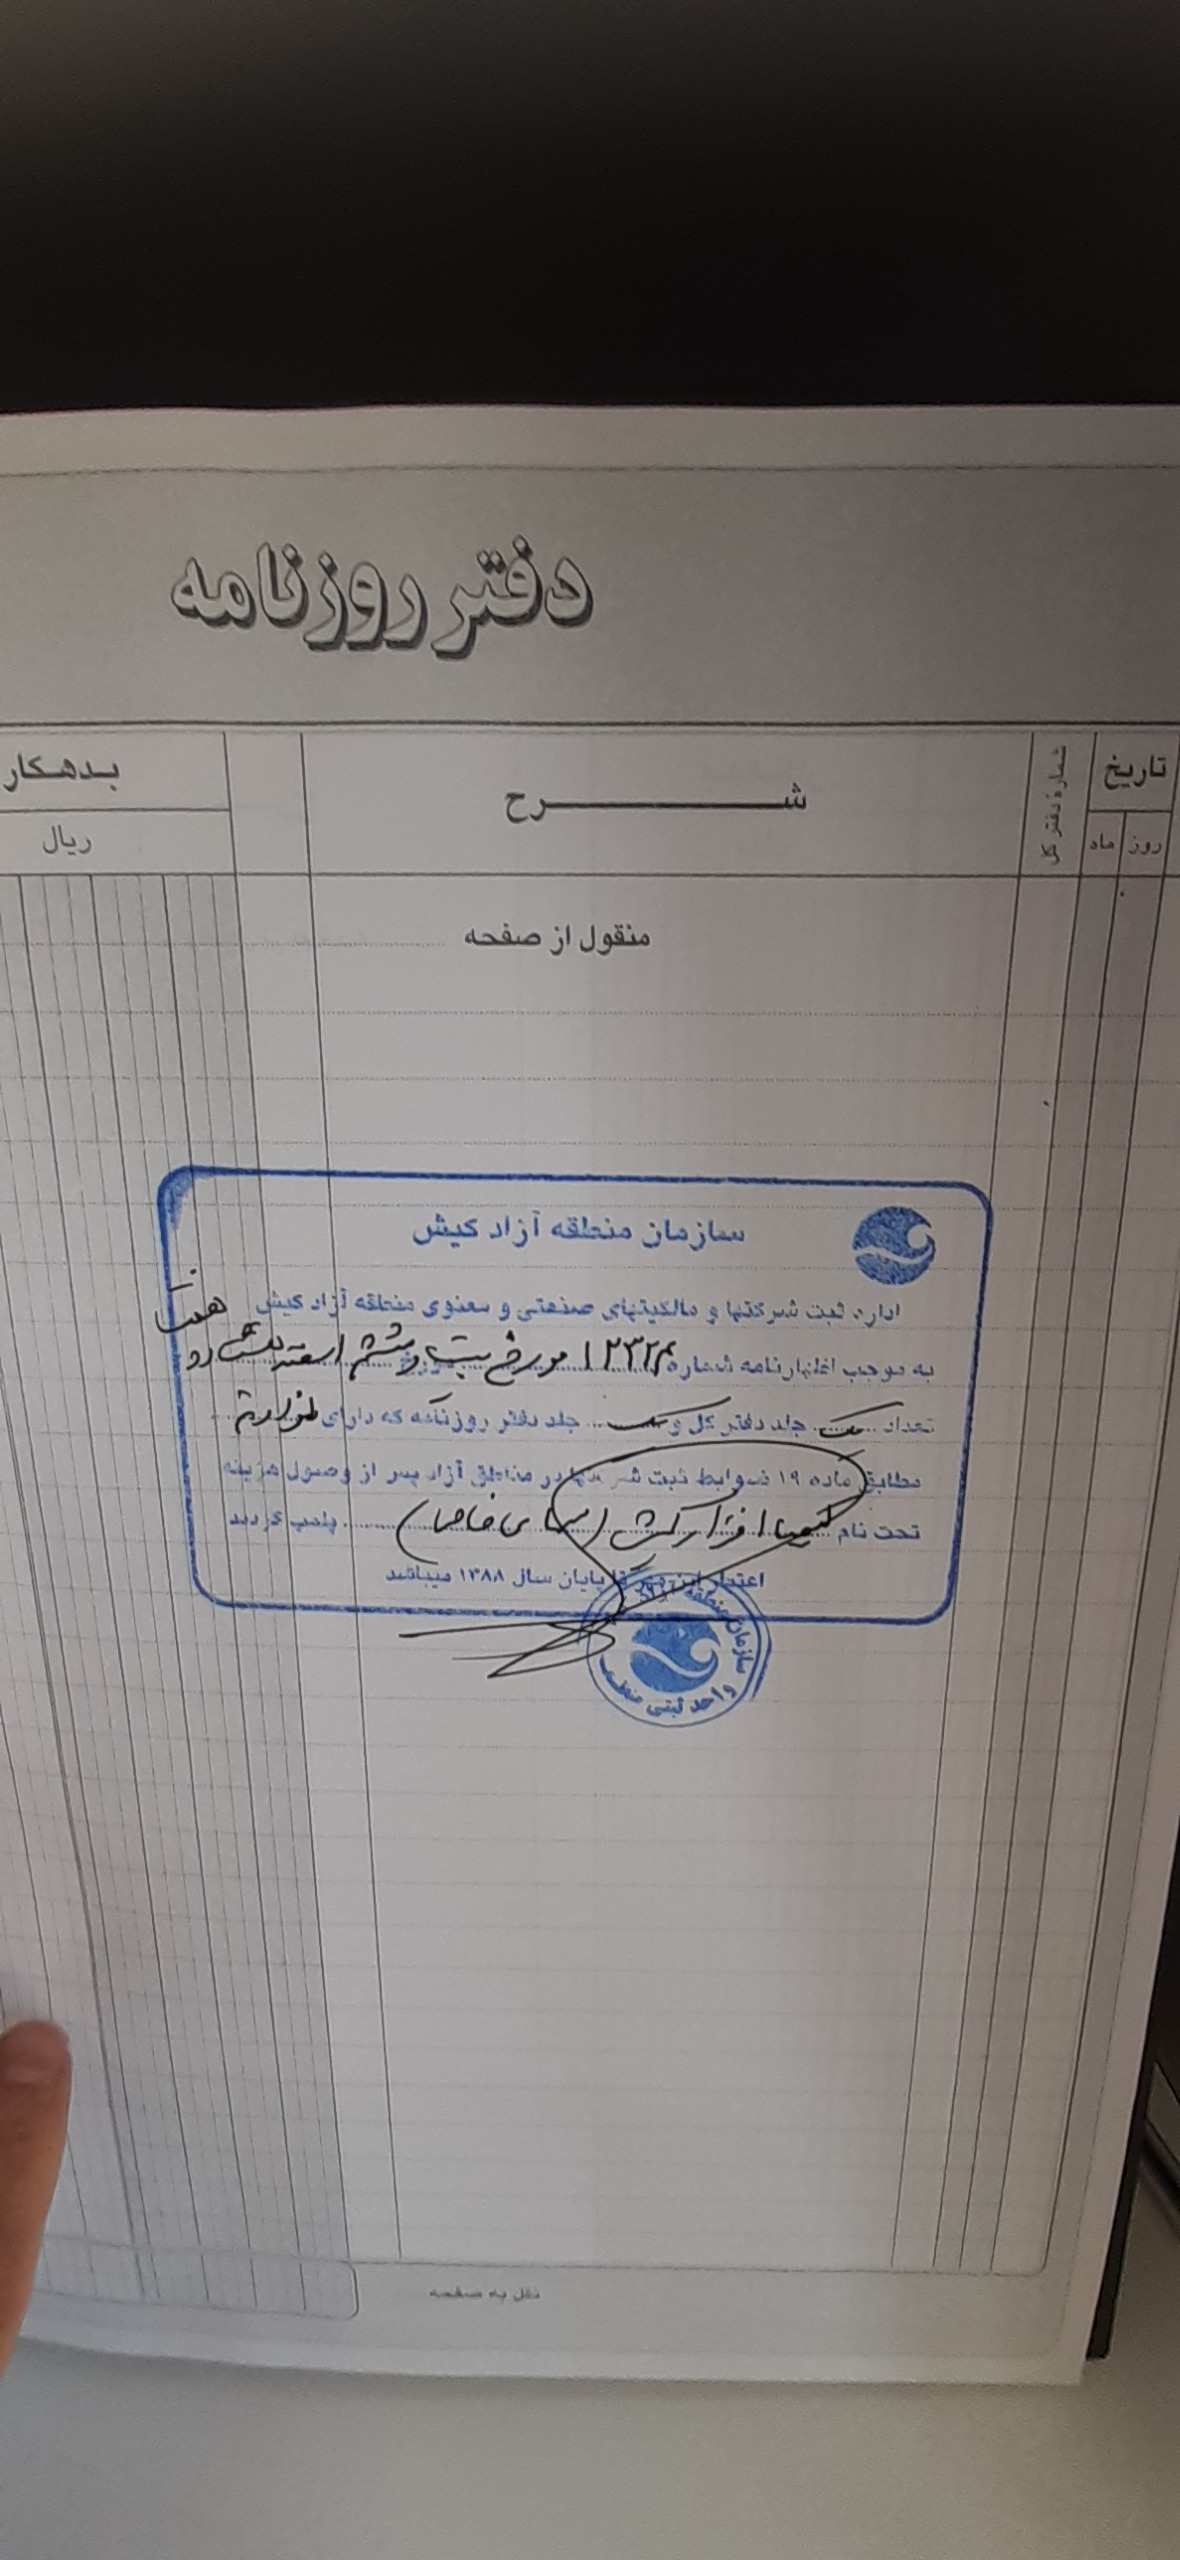 دفتر روزنامه
تاریخ
روز
ماه
شماره دفتر کل
شرح
بدهکار
ریال
منقول از صفحه
سازمان منطقه آزاد کیش
اداره ثبت شرکتها و مالکیتهای صنعتی و معنوی منطقه آزاد کیش
به موجب اظهارنامه شماره ۱۲۳۲۴ مورخ بیست و ششم اسفند
تعداد یک جلد دفتر کل و یک جلد دفتر روزنامه که دارای
مطابق ماده ۱۹ ضوابط ثبت شرکتها در مناطق آزاد پس از وصول هزینه
تحت نام کیمیا افزار کیش (سهامی خاص) پلمپ گردید
اعتبار این مهر تا پایان سال ۱۳۸۸ میباشد
سازمان منطقه
واحد ثبتی
نقل به صفحه